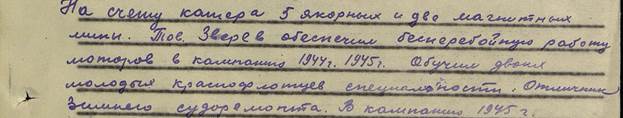 На счету катера 5 якорных и две магнитных
мины. Тов. Зверев обеспечил бесперебойную работу
моторов в кампанию 1944г. 1945г. Обучил двоих
молодых краснофлотцев специальности. Отличник
Зимнего судоремонта. В кампанию 1945 г.